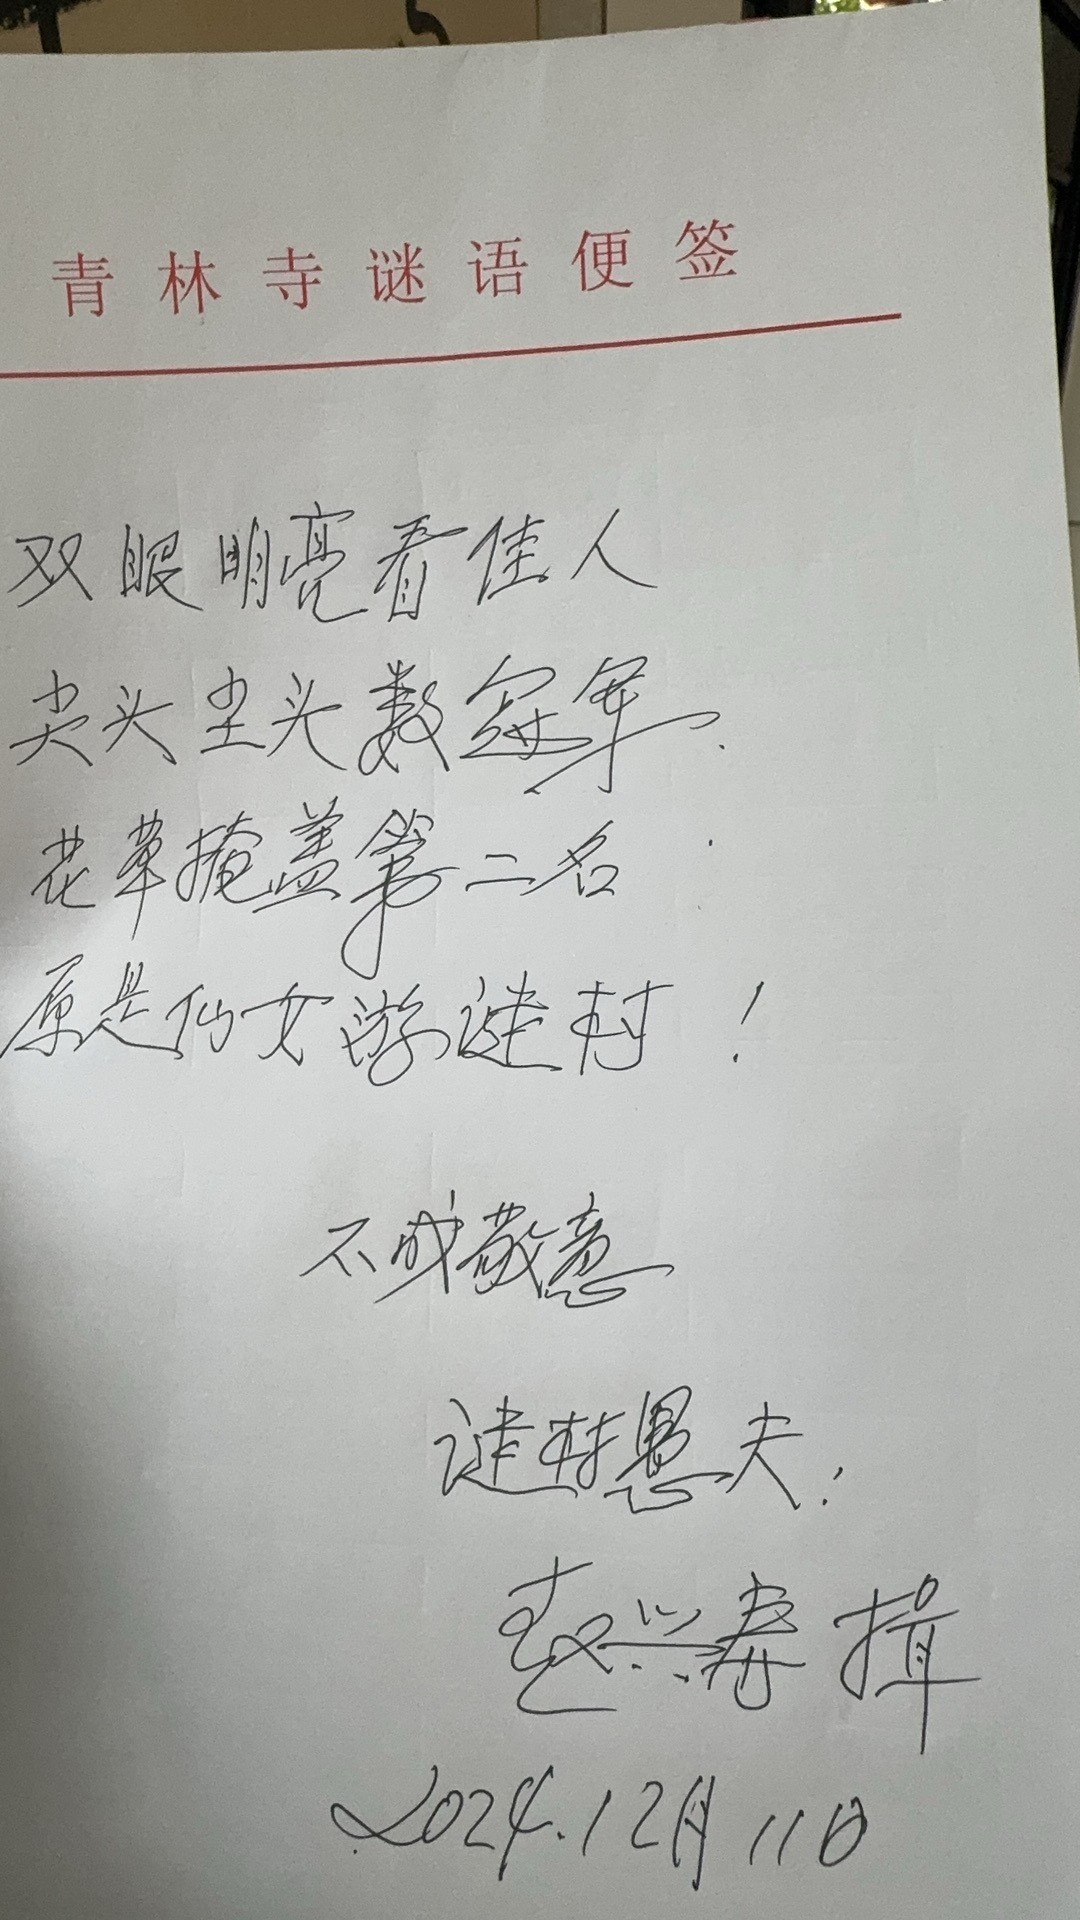 青林寺谜语便签
双眼明亮看佳人
尖头尖头数冠军.
花草掩盖第二名
原是仙女游谜村！
不成敬意
谜村愚夫.
赵兴寿 揖
2024.12月11日